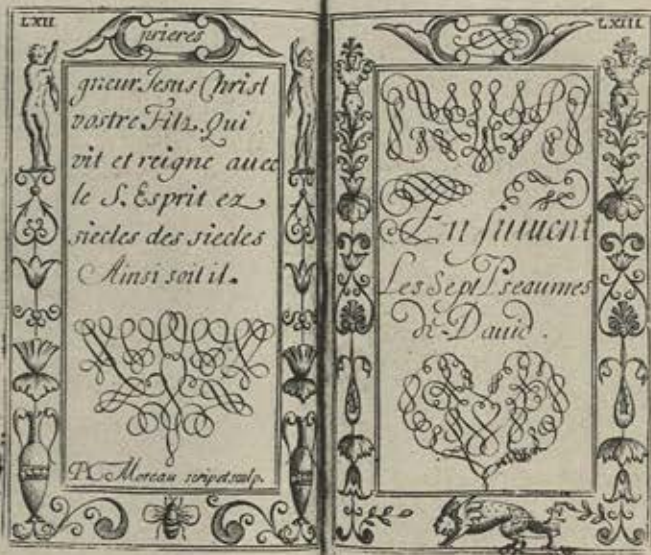 LXII
prieres
gneur Jesus Christ
vostre Filz. Qui
vit et reigne auec
le S. Esprit ez
siecles des siecles
Ainsi soit il.
P. Moreau scrip et sculp.
LXIII
En suiuent
Les Sept Pseaumes
de Dauid.